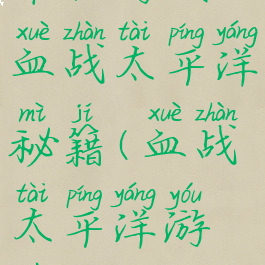 xuè zhàn tài píng yáng
血战太平洋
mì jí xuè zhàn
秘籍(血战
tài píng yáng yóu
太平洋游